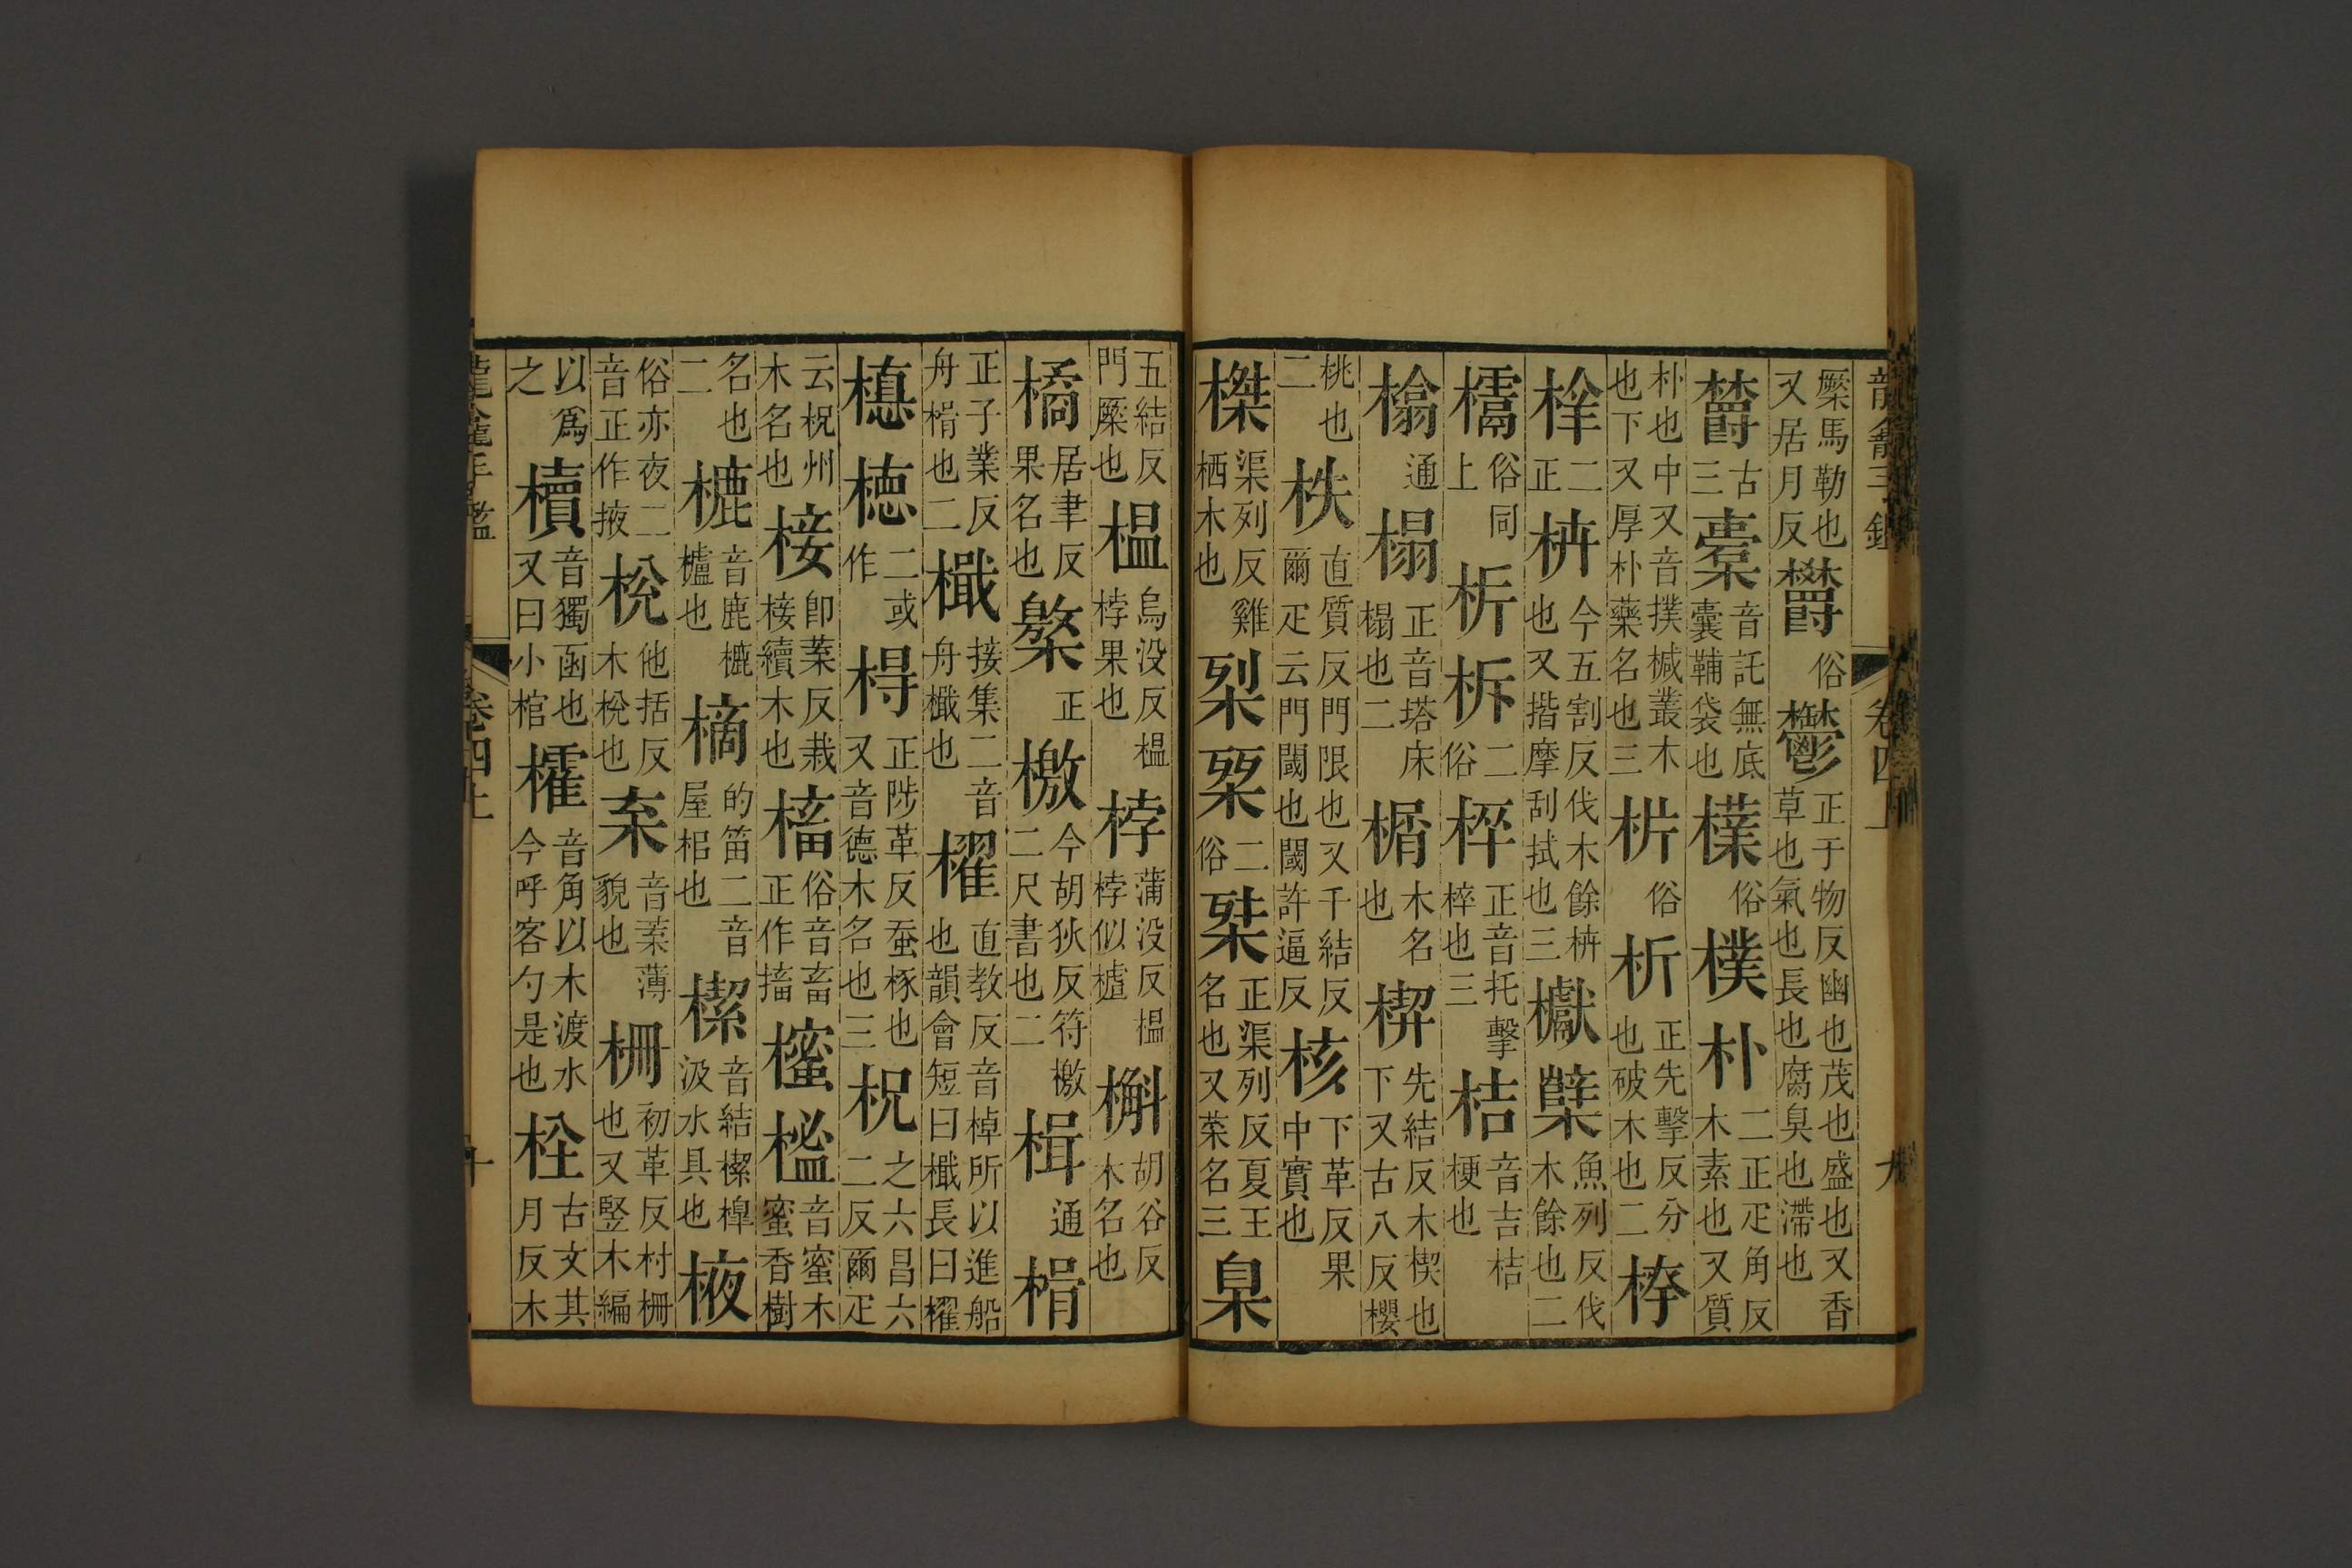 橜馬勒也又居月反欝俗鬱正于物反幽也茂也盛也又香草也氣也長也腐臭也滯也
古三槖音託無底囊鞴袋也檏俗樸朴二正疋角反木素也又質
朴也中又音撲樕叢木也下又厚朴藥名也三枿俗析正先擊反分也破木也二桳
二正枿今五割反伐木餘枿也又揩摩刮拭也三櫱魚列反伐木餘也二
俗同上析柝二俗正音托擊也三桔音吉桔梗也
通榻正音塔床榻也二楯木名也楔先結反木楔也下又古八反櫻
桃也二柣直質反門限也又千結反爾疋云門閾也閾許逼反核下革反果中實也
榤渠列反雞栖木也二俗桀正渠列反夏王名也又菜名三臬
五結反門橜也榲烏没反榲桲果也桲蒲没反榲桲似樝槲胡谷反木名也
橘居聿反果名也檠正檄今胡狄反符檄二尺書也二楫通
正子業反舟楫也二檝接集二音舟檝也櫂直教反音棹所以進船也韻會短曰檝長曰櫂
二或作正陟革反蚕椓也又音德木名也三柷之六昌六二反爾疋
云柷州木名也椄即葉反栽椄續木也槒俗音畜正作搐樒音蜜木蜜香樹
名也二樚音鹿樚櫨也樀的笛二音屋梠也㮮音結㮮槔汲水具也棭
俗亦夜二音正作掖梲他括反木梲也音葉薄貌也柵初革反村柵也又竪木編
以爲之櫝音獨函也又曰小棺音角以木渡水今呼客勺是也古文其月反木